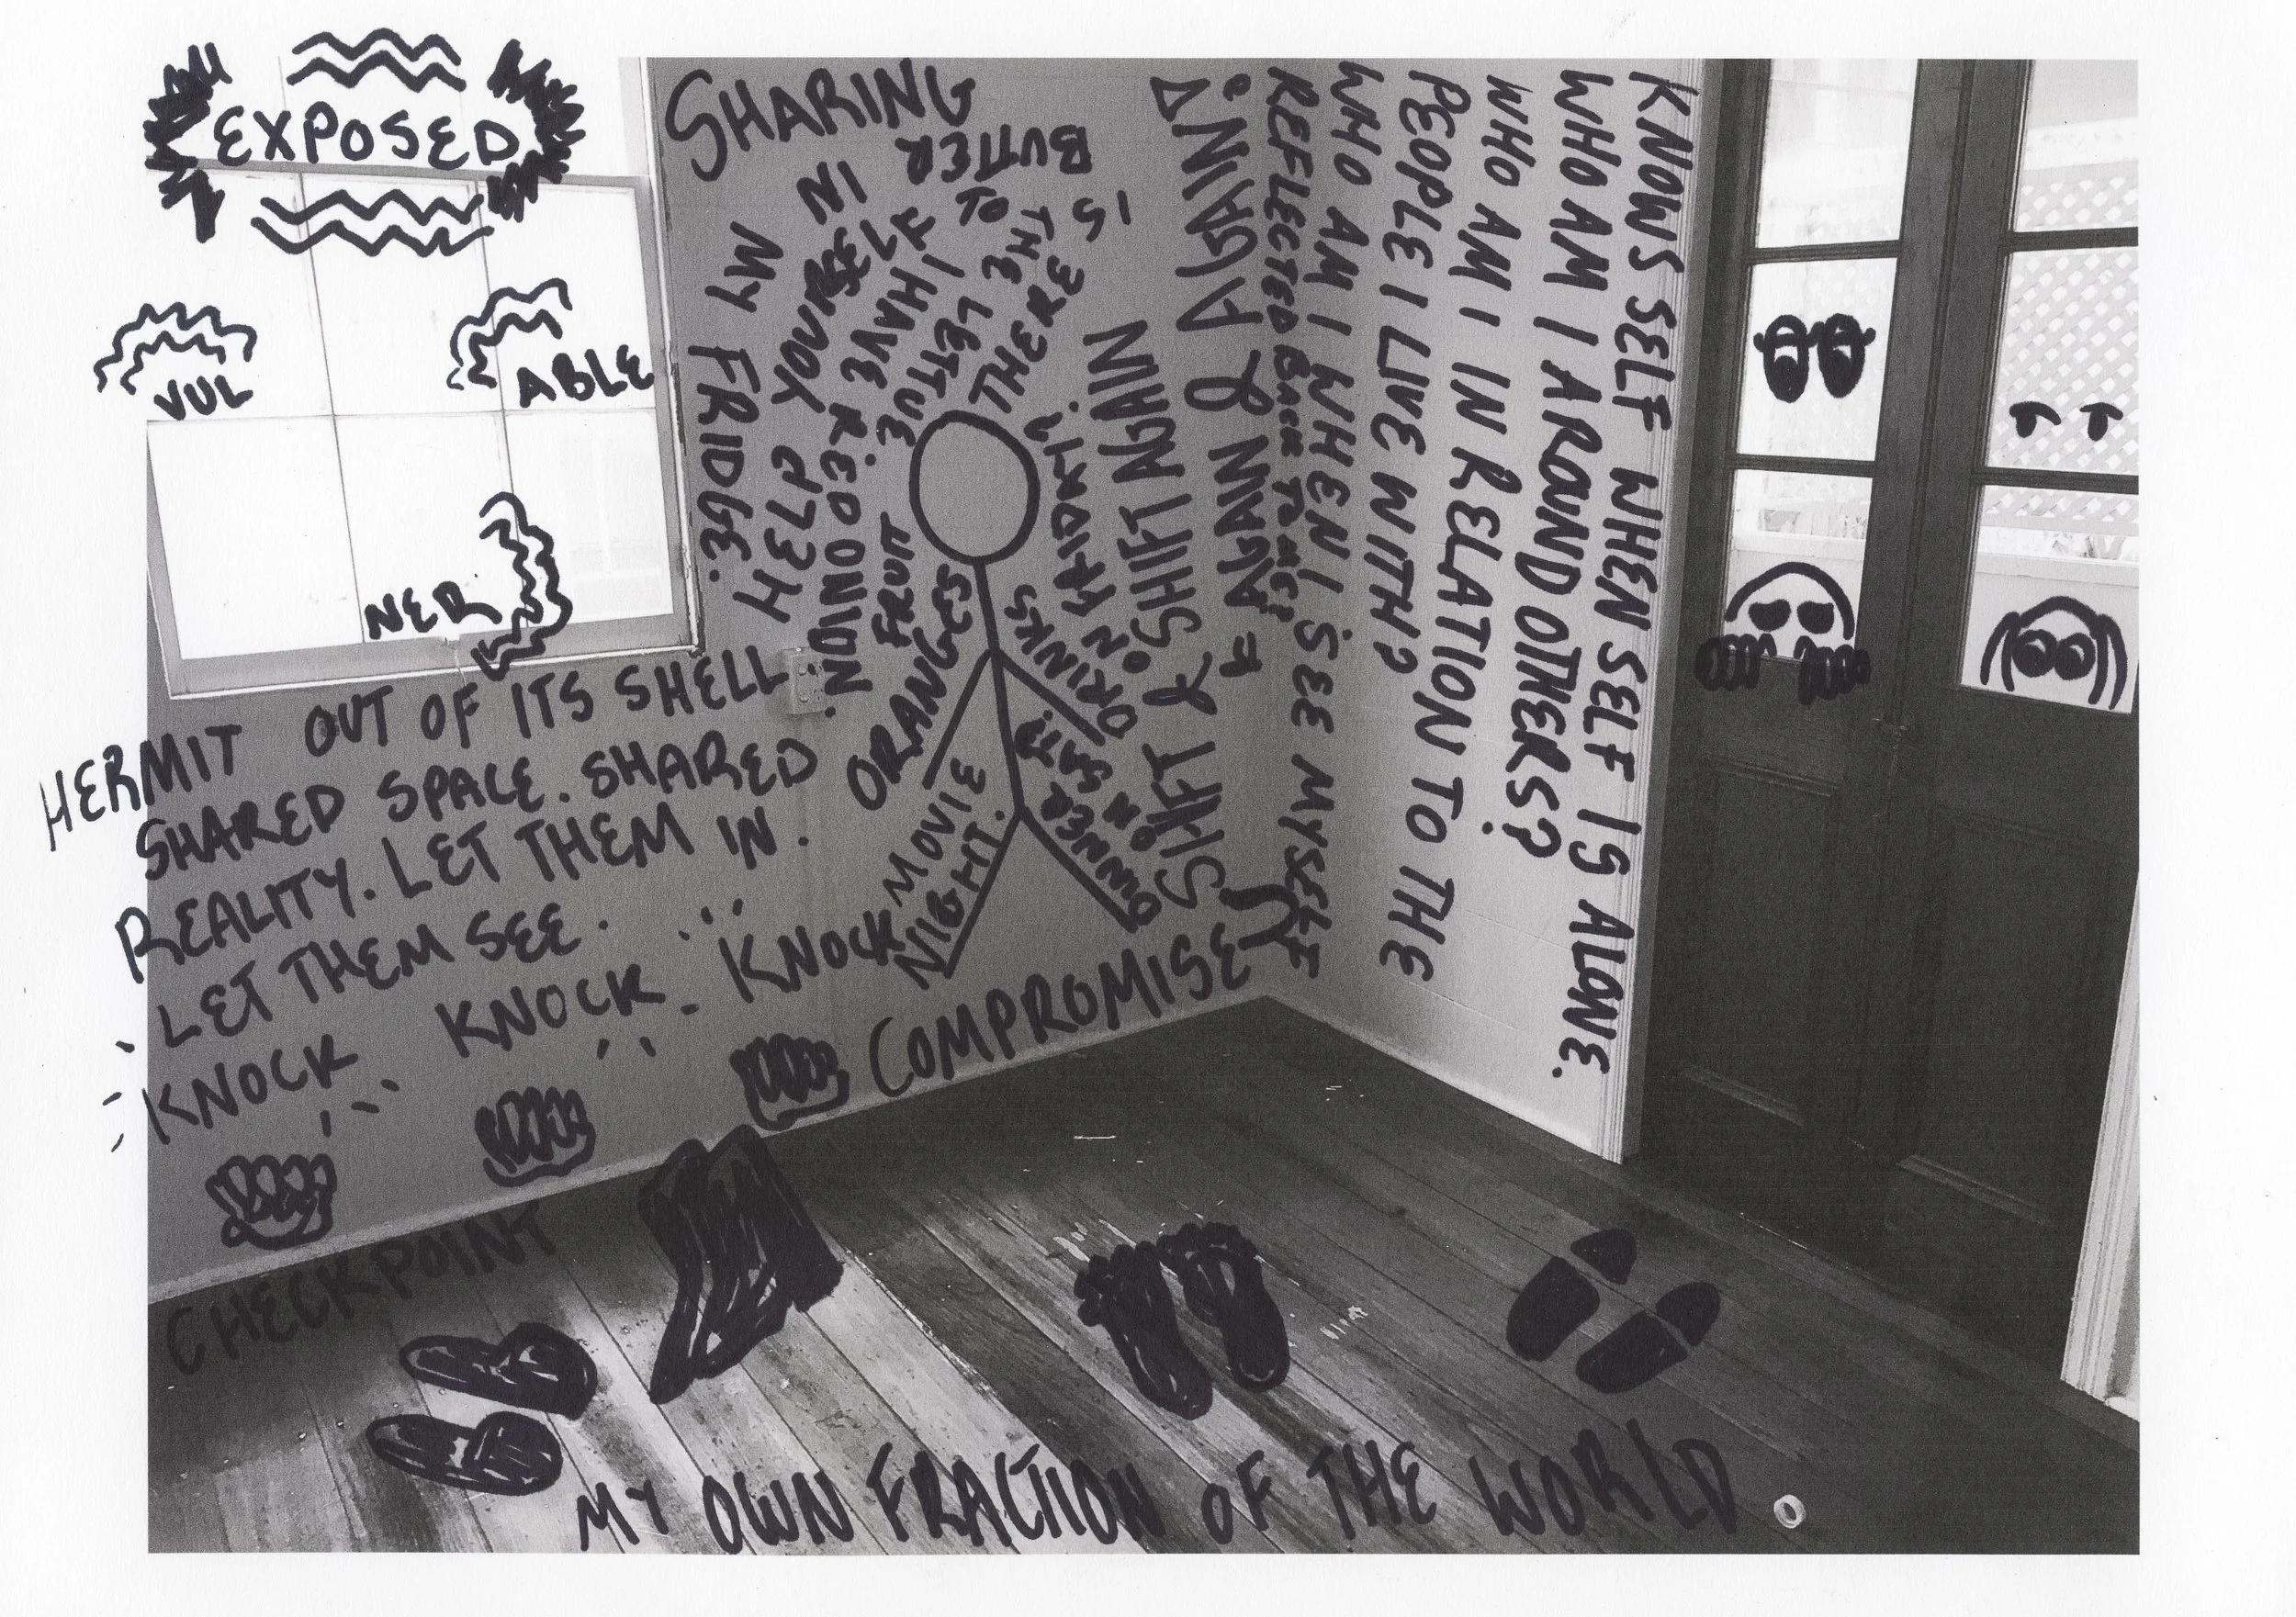 EXPOSED
VUL
NER
ABLE
SHARING
THERE
IS
BUTTER
IN
MY FRIDGE.
HELP YOURSELF
LETTUCE
FRUIT
ORANGES
MOVIE
NIGHT.
DRINKS
ON FRIDAY?
DINNER
ON SAT?
SHIFT & SHIFT AGAIN
& AGAIN & AGAIN
COMPROMISE
KNOWS SELF WHEN SELF IS ALONE.
WHO AM I AROUND OTHERS?
WHO AM I IN RELATION TO THE
PEOPLE I LIVE WITH?
WHO AM I WHEN I SEE MYSELF
REFLECTED BACK TO ME?
HERMIT OUT OF ITS SHELL.
SHARED SPACE. SHARED
REALITY. LET THEM IN.
LET THEM SEE.
KNOCK KNOCK KNOCK
CHECKPOINT
MY OWN FRACTION OF THE WORLD